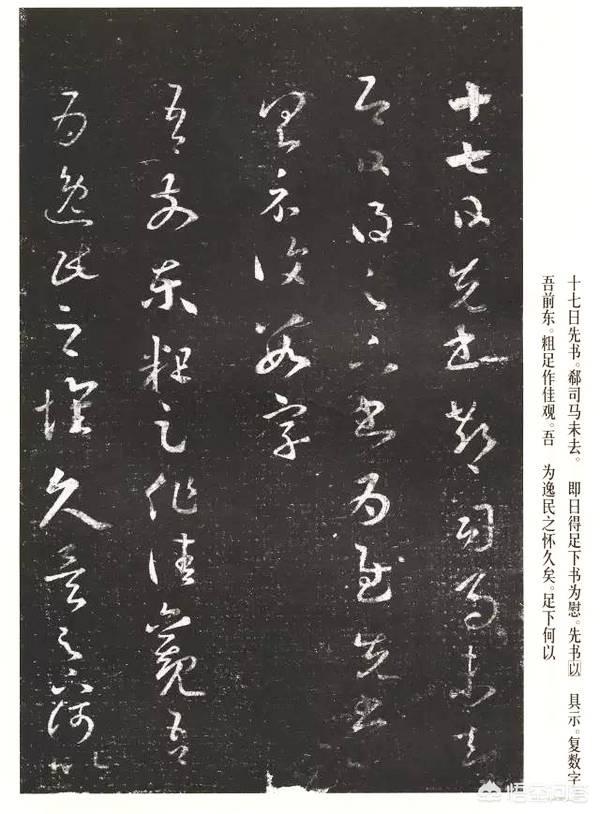 十七日先书。郗司马未去。 即日得足下书为慰。先书以 具示。复数字
吾前东。粗足作佳观。吾 为逸民之怀久矣。足下何以
十七日先書郗司馬未去
即日得足下書為慰先書
具示復數字
吾前東粗足作佳觀吾
為逸民之懷久矣足下何以
悟空问答